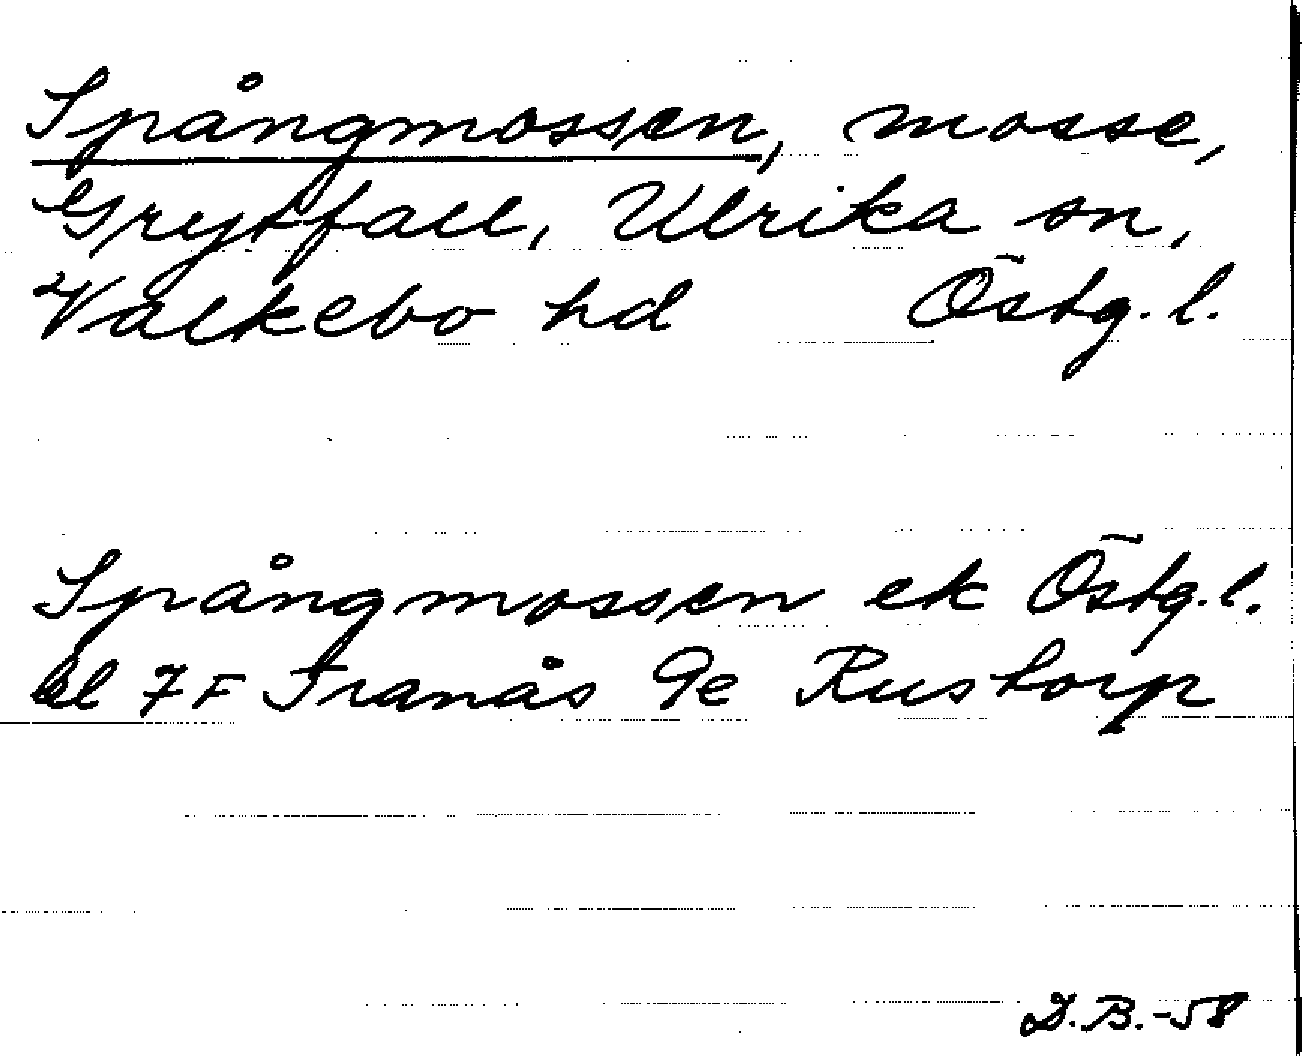 Spångmossen, mosse,
Grytfall, Ulrika sn,
Valkebo hd Östg. l.
Spångmossen ek Östg. l.
bl 7F Tranås 9e Rustorp
D.B.-58